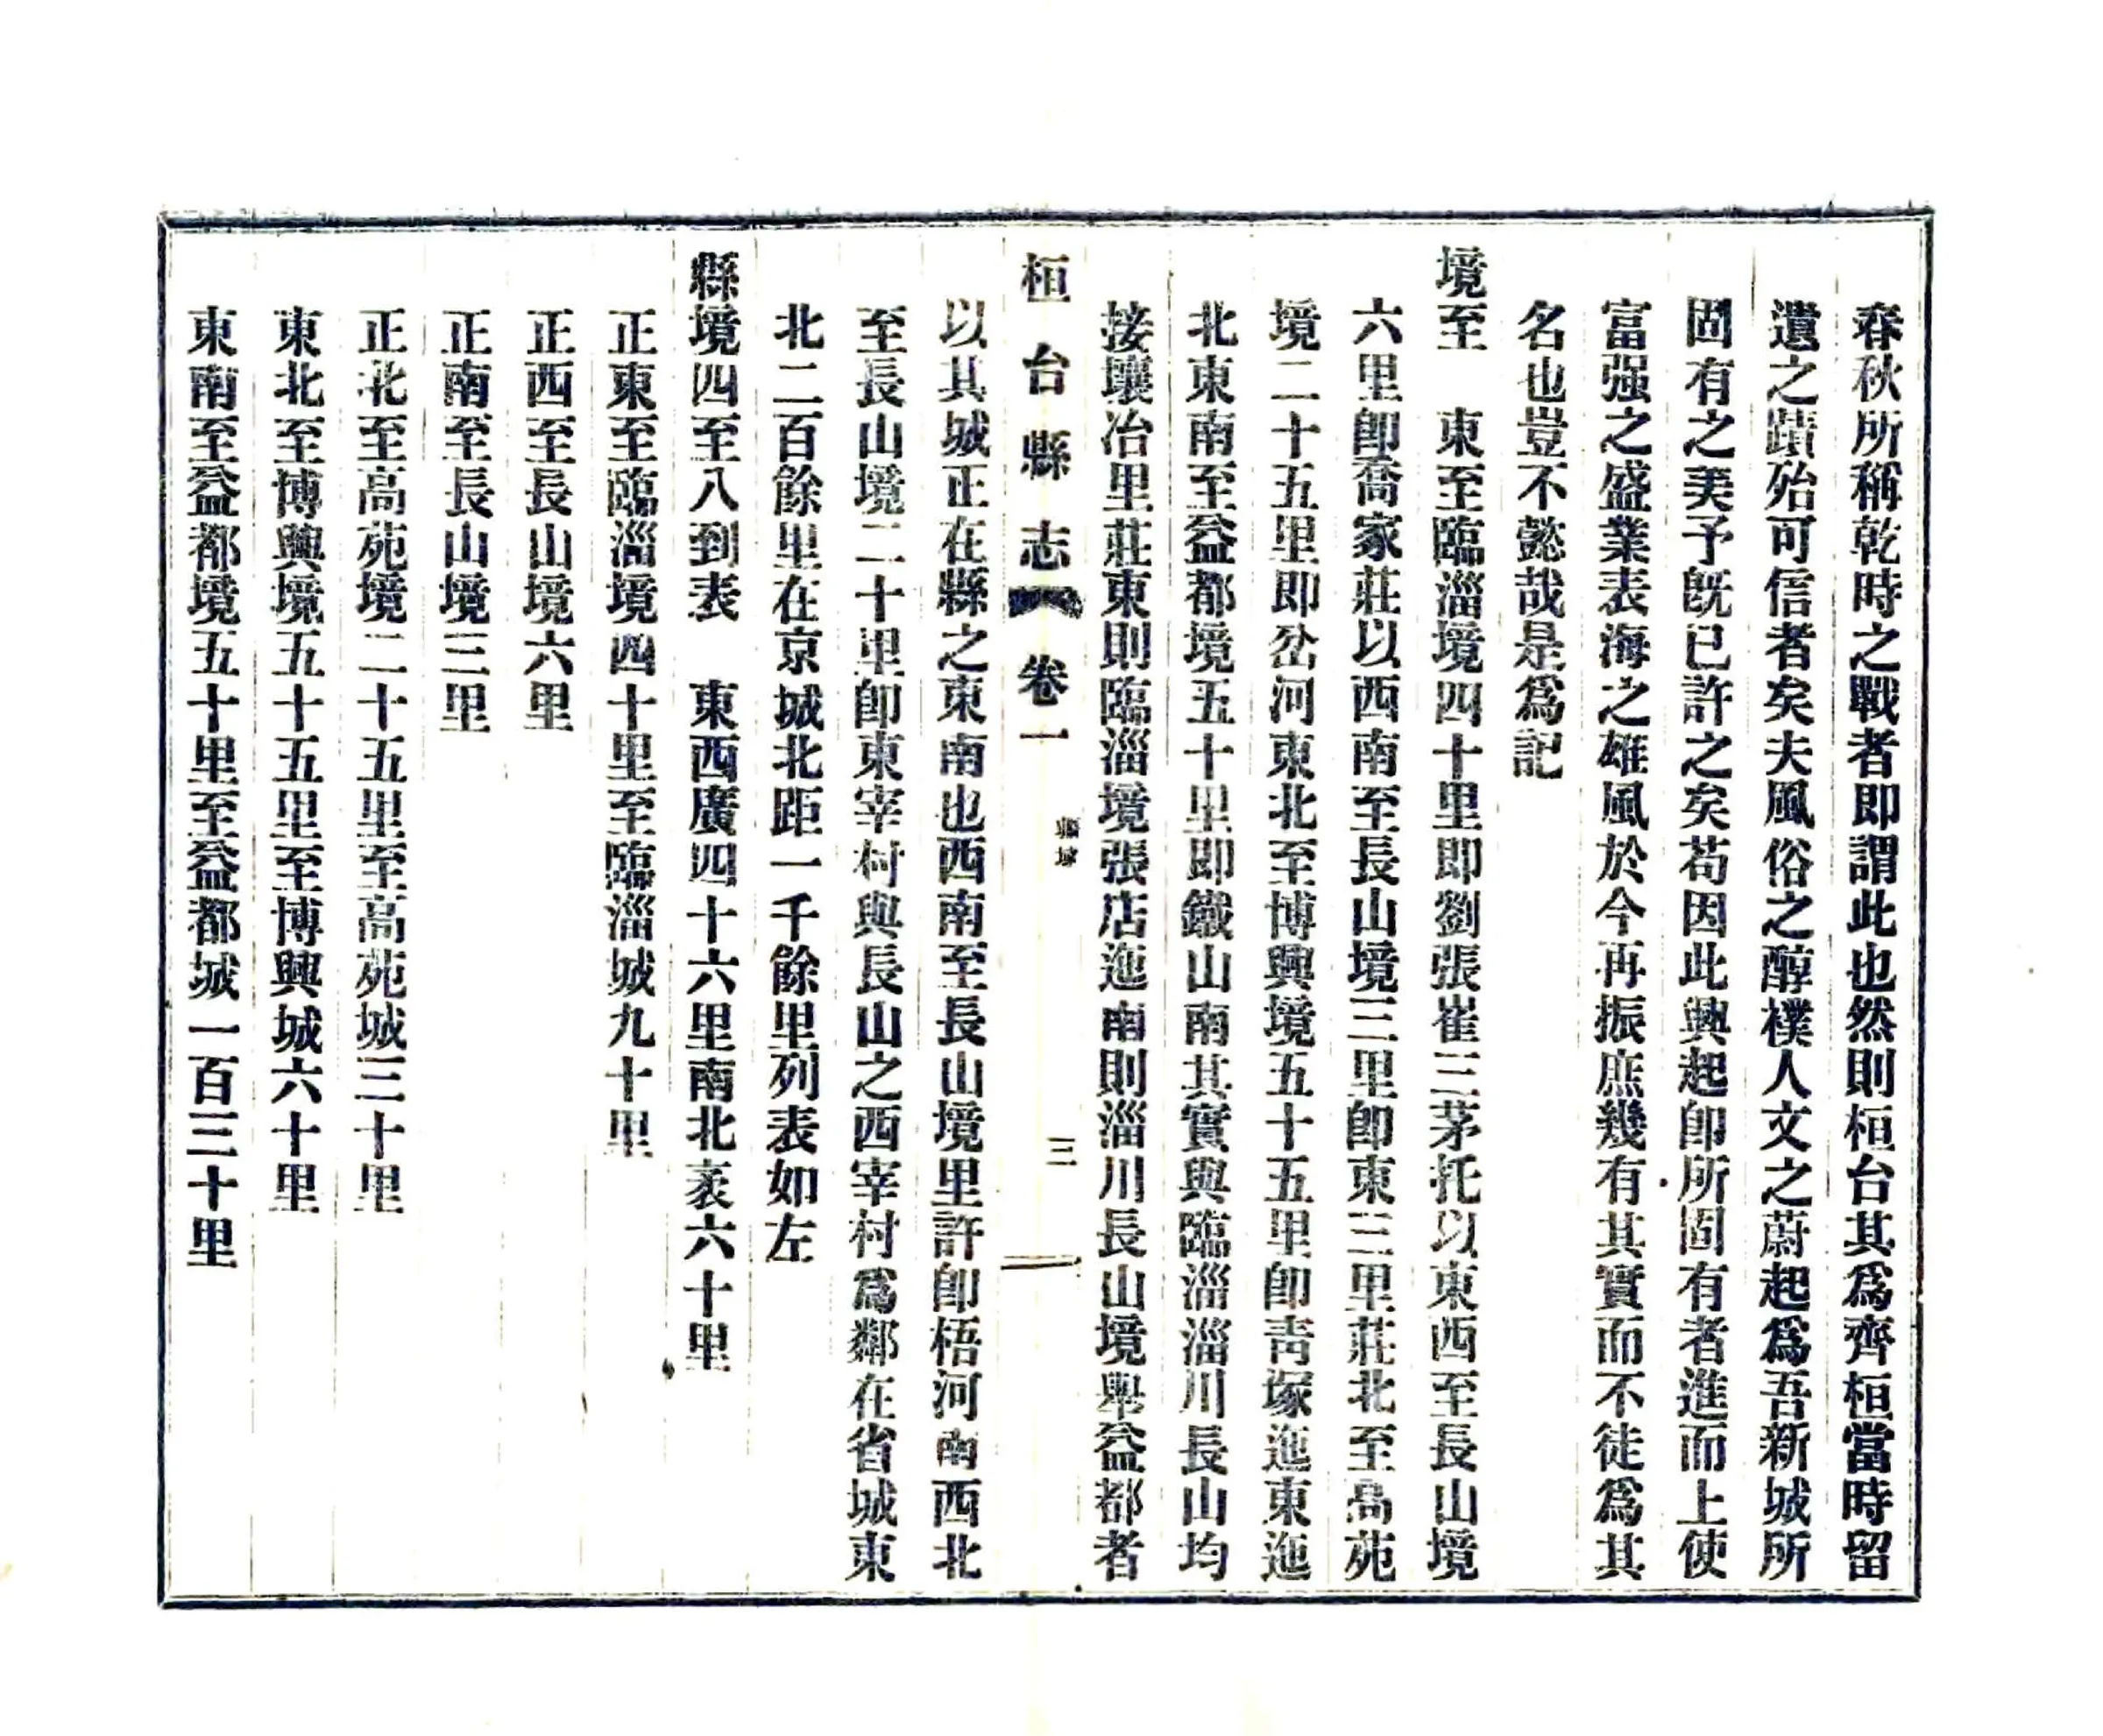 春秋所稱乾時之戰者即謂此也然則桓台其爲齊桓當時留
遺之蹟殆可信者矣夫風俗之醇樸人文之蔚起爲吾新城所
固有之美予旣已許之矣苟因此興起卽所固有者進而上使
富强之盛業表海之雄風於今再振庶幾有其實而不徒爲其
名也豈不懿哉是爲記
境至　東至臨淄境四十里即劉張崔三茅托以東西至長山境
六里卽喬家莊以西南至長山境三里卽東三里莊北至高苑
境二十五里即岔河東北至博興境五十五里卽靑塚迤東迤
北東南至益都境五十里即鐵山南其實與臨淄淄川長山均
接壤冶里莊東則臨淄境張店迤南則淄川長山境舉益都者
桓台縣志　卷一　疆域　三
以其城正在縣之東南也西南至長山境里許卽梧河南西北
至長山境二十里卽東宰村與長山之西宰村爲鄰在省城東
北二百餘里在京城北距一千餘里列表如左
縣境四至八到表　東西廣四十六里南北袤六十里
正東至臨淄境四十里至臨淄城九十里
正西至長山境六里
正南至長山境三里
正北至高苑境二十五里至高苑城三十里
東北至博興境五十五里至博興城六十里
東南至益都境五十里至益都城一百三十里